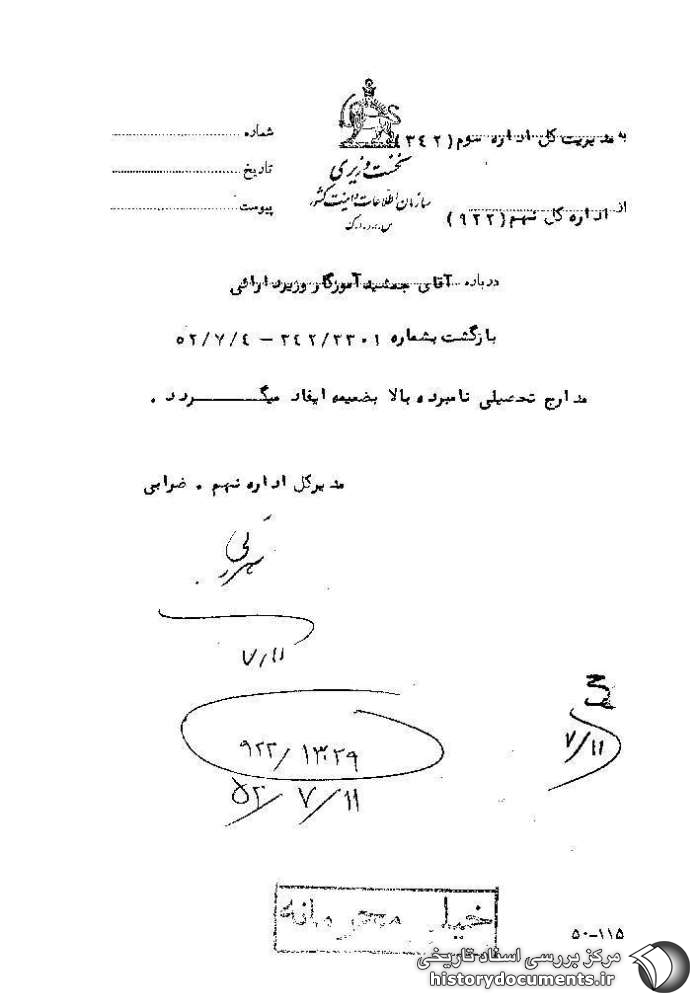 به مدیریت کل اداره سوم (۳۴۲)
شماره
نخست وزیری
تاریخ
سازمان اطلاعات و امنیت کشور
از اداره کل نهم (۹۲۲)
پیوست
درباره آقای جمشید آموزگار وزیر دارائی
بازگشت بشماره ۳۴۲/۳۳۰۱ - ۵۲/۷/۴
مدارج تحصیلی نامبرده بالا بضمیمه ایفاد میگـــــردد .
مدیرکل اداره نهم . ضرابی
۷/۱۱
۷/۱۱
۹۲۲/۱۳۰۲۹
۵۲/۷/۱۱
خیلی محرمانه
۵۰-۱۱۵
مرکز بررسی اسناد تاریخی
historydocuments.ir